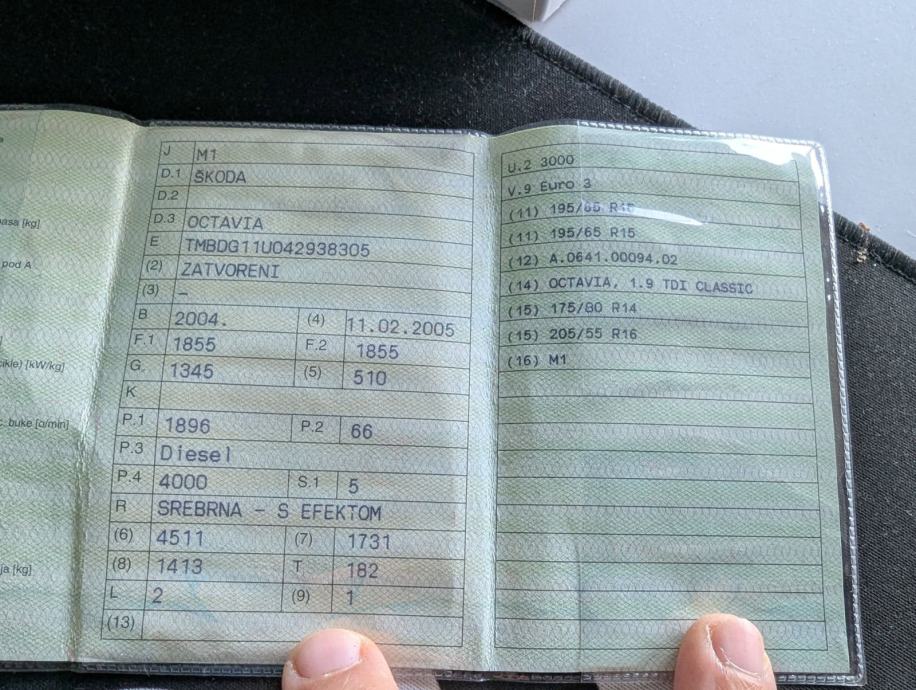 asa [kg]
pod A
cikle) [kW/kg]
buke [o/min]
ja [kg]
J M1
D.1 ŠKODA
D.2
D.3 OCTAVIA
E TMBDG11U042938305
(2) ZATVORENI
(3) –
B 2004. (4) 11.02.2005
F.1 1855 F.2 1855
G. 1345 (5) 510
K
P.1 1896 P.2 66
P.3 Diesel
P.4 4000 S.1 5
R SREBRNA – S EFEKTOM
(6) 4511 (7) 1731
(8) 1413 T 182
L 2 (9) 1
(13)
U.2 3000
V.9 Euro 3
(11) 195/65 R15
(11) 195/65 R15
(12) A.0641.00094.02
(14) OCTAVIA, 1.9 TDI CLASSIC
(15) 175/80 R14
(15) 205/55 R16
(16) M1